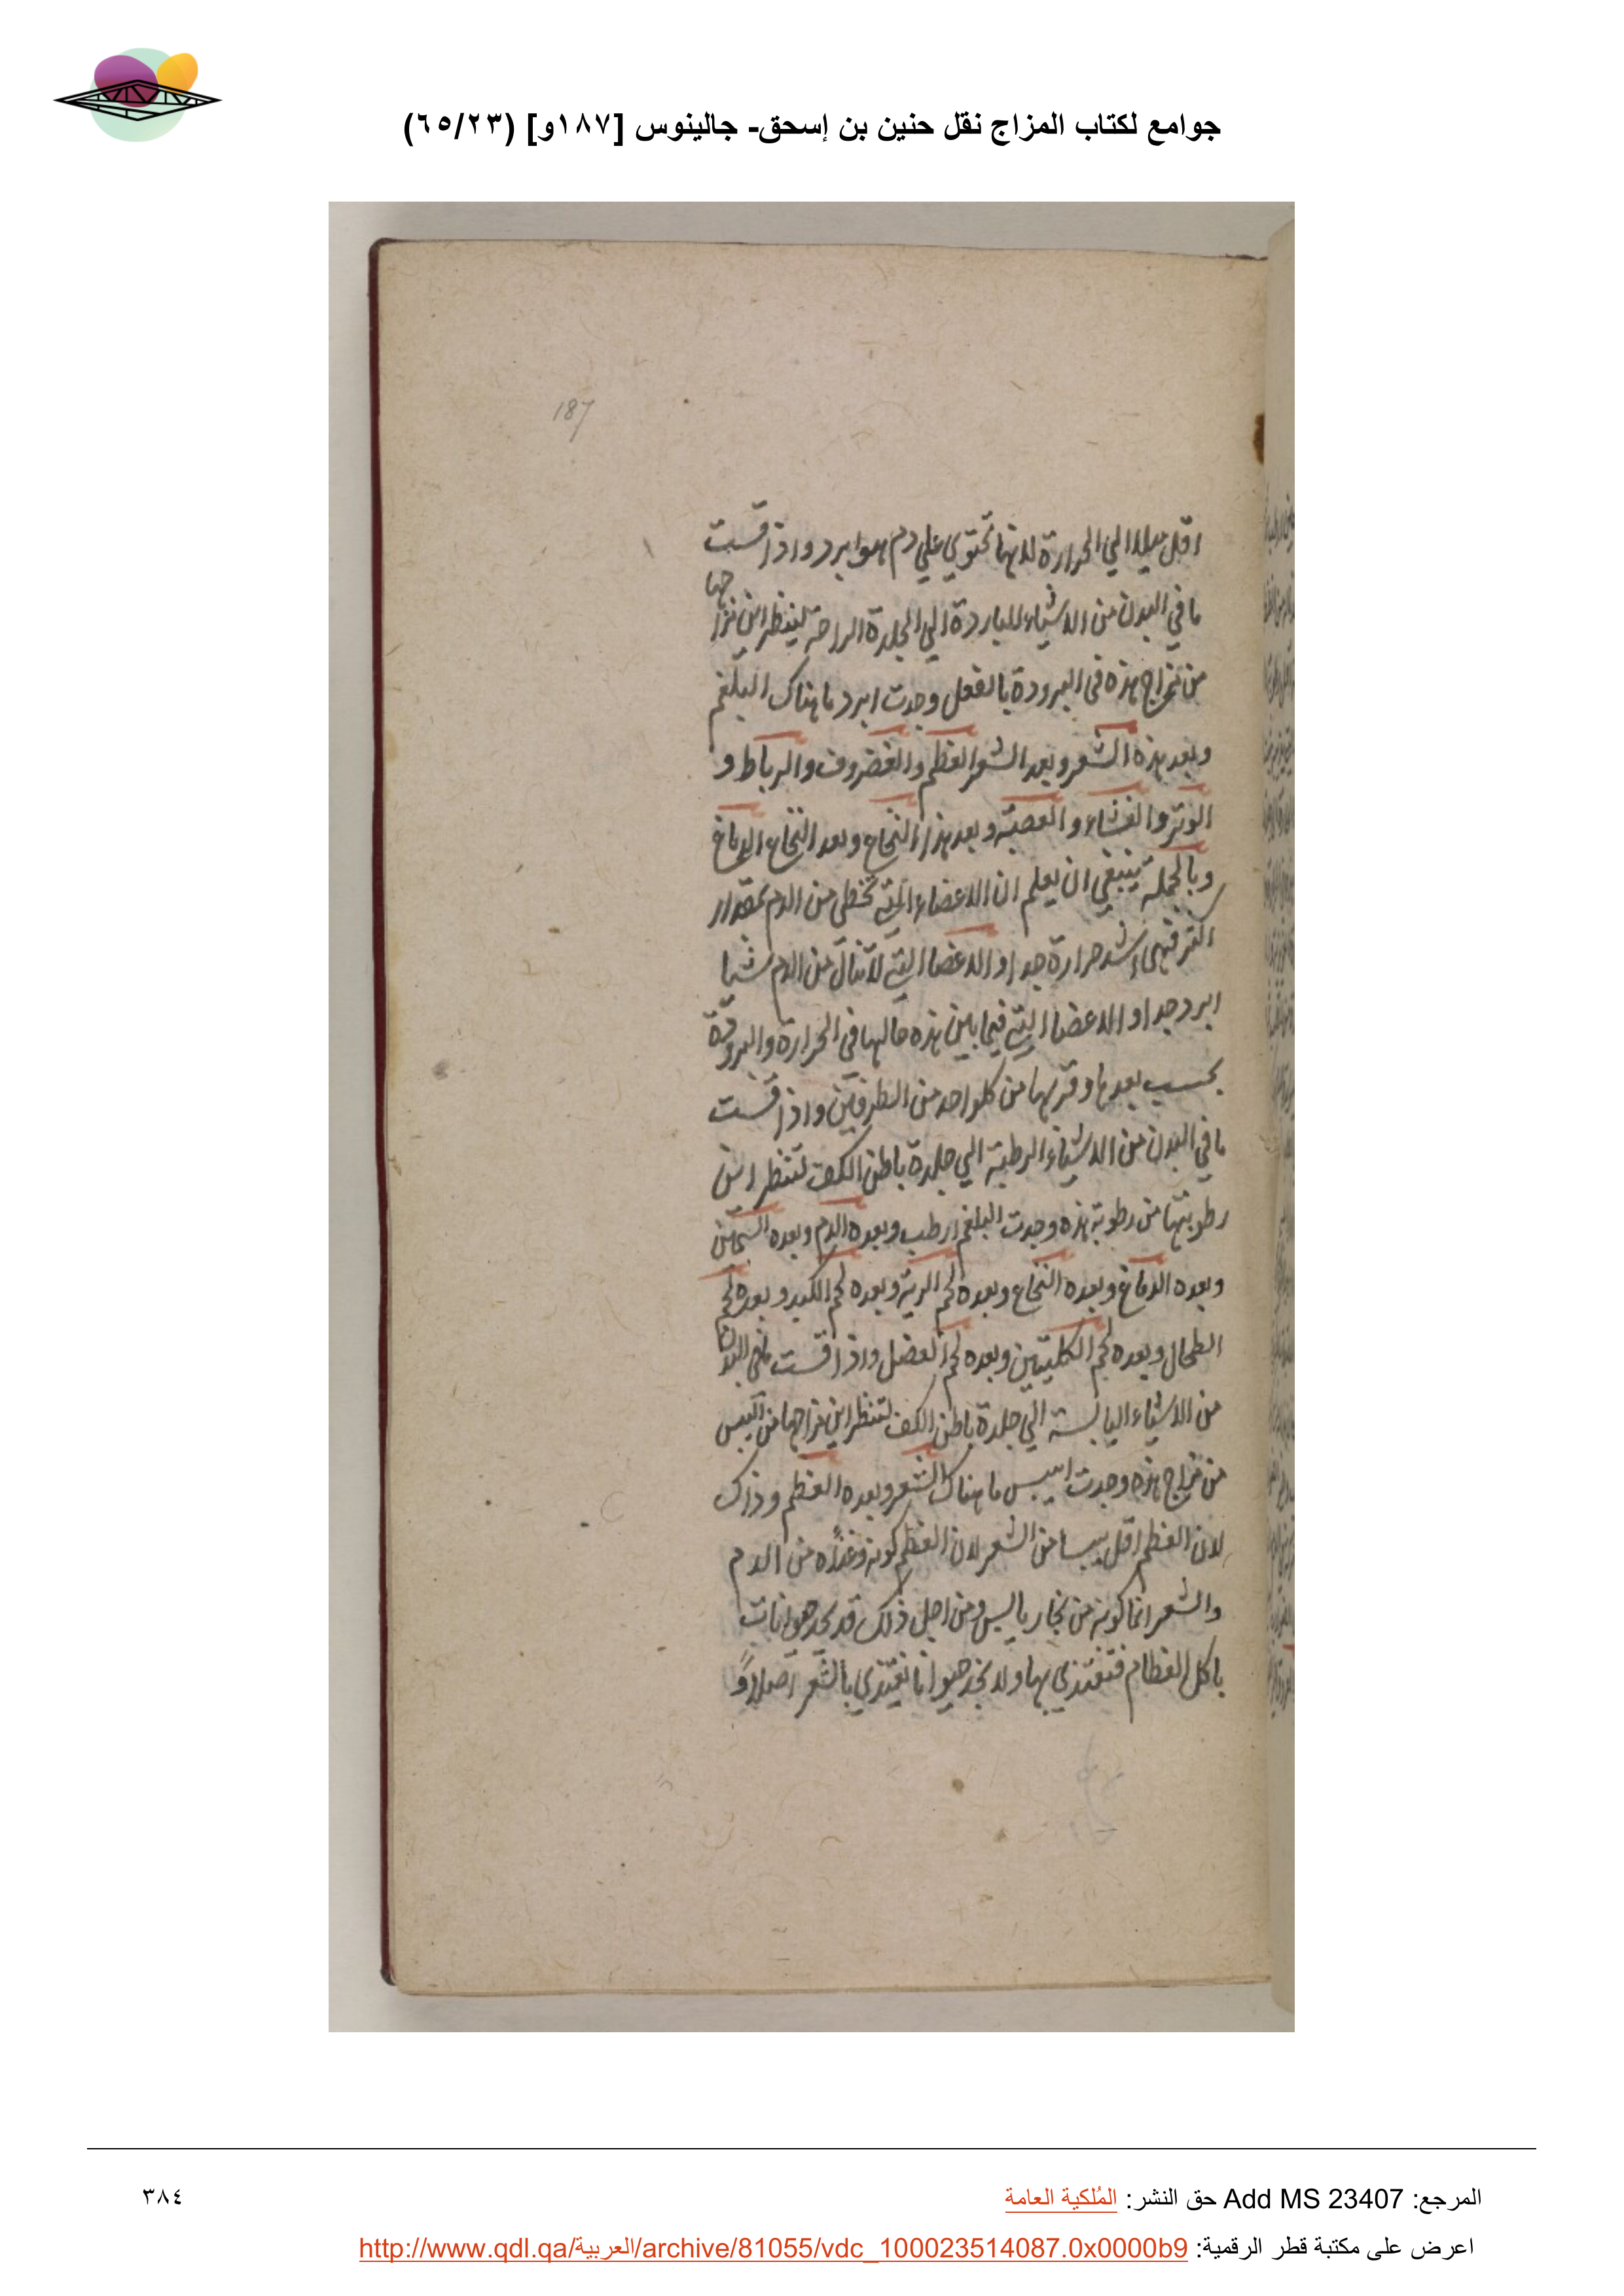 جوامع لكتاب المزاج نقل حنين بن إسحق- جالينوس [١٨٧و] (٦٥/٢٣)
187
اقل ميلا الي الحرارة لانها تحتوي علي دم هو ابرد واذا قست
ما في البدن من الاشياء الباردة الي الجلدة الراحة لينظر اين مزاجها
من مزاج هذه في البرودة بالفعل وجدت ابرد ما هناك البلغم
وبعد هذه الشعر وبعد الشعر العظم والغضروف والرباط و
الوتر والغشاء والعصبة وبعد هذا النخاع وبعد النخاع الدماغ
وبالجملة ينبغي ان يعلم ان الاعضاء التي تحظي من الدم بمقدار
اكثر فهي اشد حرارة جدا والاعضا التي لا تنال من الدم شيا
ابرد جدا والاعضا التي فيما بين هذه حالها في الحرارة والبرودة
بحسب بعدها وقربها من كلواحد من الطرفين واذا قست
ما في البدن من الاشياء الرطبة الي جلدة باطن الكف لتنظر اين
رطوبتها من رطوبة هذه وجدت البلغم ارطب وبعده الدم وبعده السمين
وبعده الدماغ وبعده النخاع وبعده لحم الرية وبعده لحم الكبد وبعده لحم
الطحال وبعده لحم الكليتين وبعده لحم العضل واذا قست ما في البدن
من الاشياء اليابسة الي جلدة باطن الكف لتنظر اين مزاجها من اليبس
من مزاج هذه وجدت ايبس ما هناك الشعر وبعده العظم وذاك
لان العظم اقل يبسا من الشعر لان العظم كونه وغذاه من الدم
والشعر انما كونه من بخار يابس ومن اجل ذلك قد نجد حيوانات
ياكل العظام فتغتذي بها ولا نجد حيوانا يغتذي بالشعر اصلا و
المرجع: Add MS 23407 حق النشر: المُلكية العامة
٣٨٤
اعرض على مكتبة قطر الرقمية: http://www.qdl.qa/العربية/archive/81055/vdc_100023514087.0x0000b9